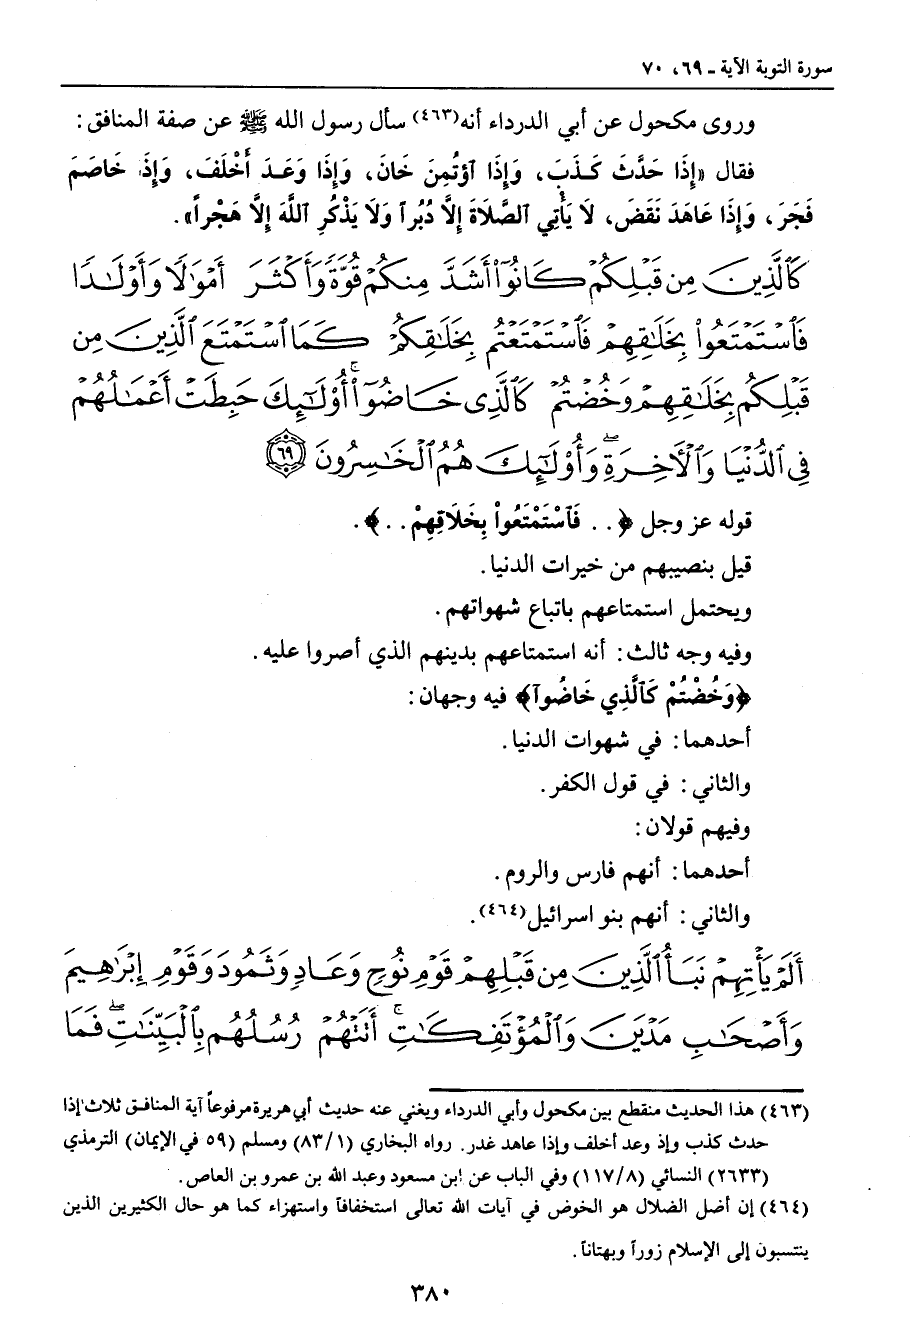 سورة التوبة الآية ـ ٦٩، ٧٠
وروى مكحول عن أبي الدرداء أنه(٤٦٣) سأل رسول الله ﷺ عن صفة المنافق:
فقال «إِذَا حَدَّثَ كَذَبَ، وَإِذَا آؤتُمِنَ خَانَ، وَإِذَا وَعَدَ أَخْلَفَ، وَإِذَ خَاصَمَ
فَجَرَ، وَإِذَا عَاهَدَ نَقَضَ، لَا يَأْتِي الصَّلَاةَ إِلَّا دُبُراً وَلَا يَذْكُرِ اللَّهَ إِلَّا هَجْراً».
كَٱلَّذِينَ مِن قَبْلِكُمْ كَانُوٓا۟ أَشَدَّ مِنكُمْ قُوَّةً وَأَكْثَرَ أَمْوَٰلًا وَأَوْلَـٰدًا
فَٱسْتَمْتَعُوا۟ بِخَلَـٰقِهِمْ فَٱسْتَمْتَعْتُم بِخَلَـٰقِكُمْ كَمَا ٱسْتَمْتَعَ ٱلَّذِينَ مِن
قَبْلِكُم بِخَلَـٰقِهِمْ وَخُضْتُمْ كَٱلَّذِى خَاضُوٓا۟ ۚ أُو۟لَـٰٓئِكَ حَبِطَتْ أَعْمَـٰلُهُمْ
فِى ٱلدُّنْيَا وَٱلْـَٔاخِرَةِ ۖ وَأُو۟لَـٰٓئِكَ هُمُ ٱلْخَـٰسِرُونَ ٦٩
قوله عز وجل ﴿.. فَٱسْتَمْتَعُواْ بِخَلَاقِهِمْ..﴾.
قيل بنصيبهم من خيرات الدنيا.
ويحتمل استمتاعهم باتباع شهواتهم.
وفيه وجه ثالث: أنه استمتاعهم بدينهم الذي أصروا عليه.
﴿وَخُضْتُمْ كَٱلَّذِي خَاضُوآ﴾ فيه وجهان:
أحدهما: في شهوات الدنيا.
والثاني: في قول الكفر.
وفيهم قولان:
أحدهما: أنهم فارس والروم.
والثاني: أنهم بنو اسرائيل(٤٦٤).
أَلَمْ يَأْتِهِمْ نَبَأُ ٱلَّذِينَ مِن قَبْلِهِمْ قَوْمِ نُوحٍ وَعَادٍ وَثَمُودَ وَقَوْمِ إِبْرَٰهِيمَ
وَأَصْحَـٰبِ مَدْيَنَ وَٱلْمُؤْتَفِكَـٰتِ ۚ أَتَتْهُمْ رُسُلُهُم بِٱلْبَيِّنَـٰتِ ۖ فَمَا
(٤٦٣) هذا الحديث منقطع بين مكحول وأبي الدرداء ويغني عنه حديث أبي هريرة مرفوعاً آية المنافق ثلاث إذا
حدث كذب وإذ وعد أخلف وإذا عاهد غدر. رواه البخاري (٨٣/١) ومسلم (٥٩ في الإيمان) الترمذي
(٢٦٣٣) النسائي (١١٧/٨) وفي الباب عن ابن مسعود وعبد الله بن عمرو بن العاص.
(٤٦٤) إن أضل الضلال هو الخوض في آيات الله تعالى استخفافاً واستهزاء كما هو حال الكثيرين الذين
ينتسبون إلى الإسلام زوراً وبهتاناً.
٣٨٠